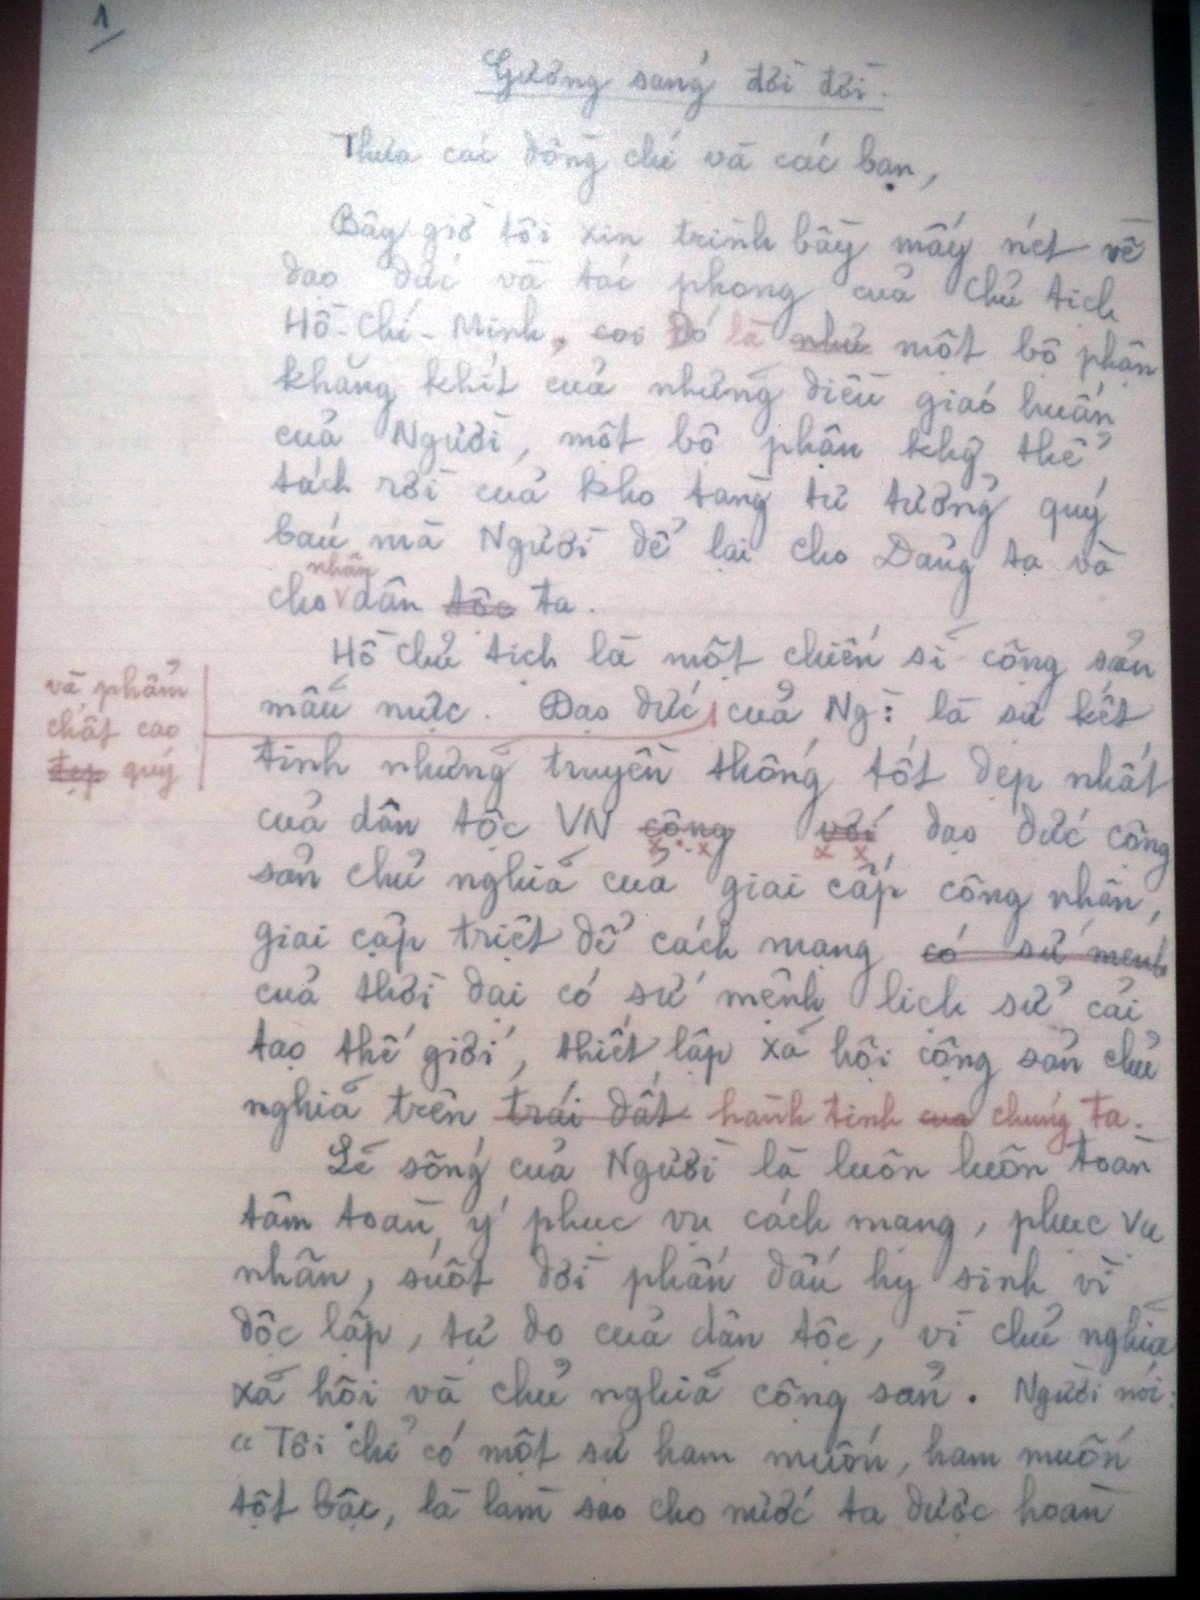 1
Gương sáng đời đời.
Thưa các đồng chí và các bạn,
Bây giờ tôi xin trình bầy mấy nét về
đạo đức và tác phong của Chủ tịch
Hồ-Chí-Minh, coi Đó là như một bộ phận
khăng khít của những điều giáo huấn
của Người, một bộ phận khg thể
tách rời của kho tàng tư tưởng quý
báu mà Người để lại cho Đảng ta và
nhân
cho dân tộc ta.
Hồ Chủ tịch là một chiến sĩ cộng sản
mẫu mực. Đạo đức của Ng: là sự kết
và phẩm
chất cao
đẹp quý
tinh những truyền thống tốt đẹp nhất
của dân tộc VN cộng với đạo đức cộng
sản chủ nghĩa của giai cấp công nhân,
giai cấp triệt để cách mạng có sứ mệnh
của thời đại có sứ mệnh lịch sử cải
tạo thế giới, thiết lập xã hội cộng sản chủ
nghĩa trên trái đất hành tinh của chúng ta.
Lẽ sống của Người là luôn luôn toàn
tâm toàn ý phục vụ cách mạng, phục vụ
nhân, suốt đời phấn đấu hy sinh vì
độc lập, tự do của dân tộc, vì chủ nghĩa
xã hội và chủ nghĩa cộng sản. Người nói:
"Tôi chỉ có một sự ham muốn, ham muốn
tột bậc, là làm sao cho nước ta được hoàn